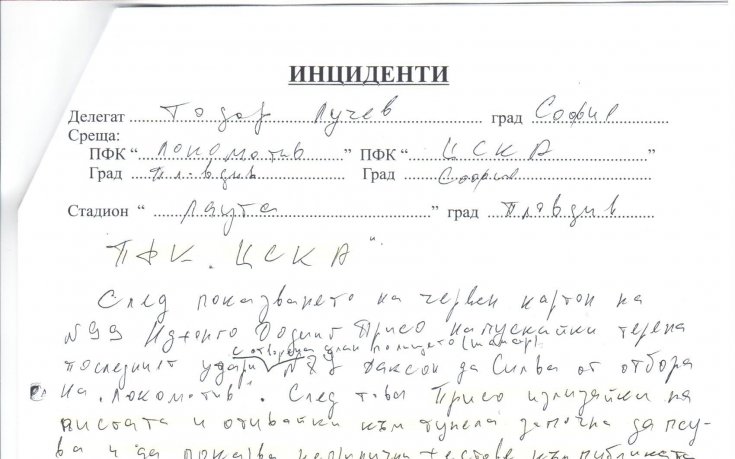 ИНЦИДЕНТИ
Делегат Тодор Лучев град София
Среща:
ПФК “Локомотив” ПФК “ЦСКА”
Град Пл-в-див Град София
Стадион “Лаута” град Пловдив
ПФК „ЦСКА“
След показването на червен картон на
№99 Присо напускайки терена
с отворена длан по лицето (шамар)
последният удари №87 Даксон да Силва от отбора
на „Локомотив“. След това Присо излизайки на
пистата и отивайки към тунела започна да псу-
ва и да показва нецинични жестове към публиката